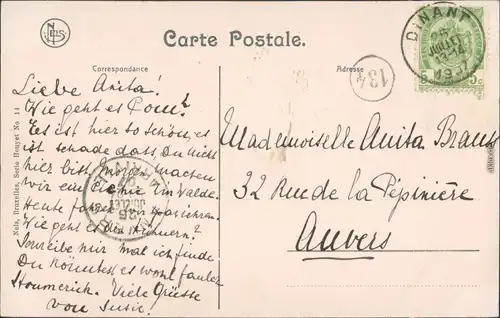 NELS
Carte Postale.
Correspondance
Adresse
DINANT
26
JUILLET
1907
134
Liebe Anita!
Wie geht es Pom?
Es ist hier so schön, es
ist schade dass Du nicht
hier bist, Morgen machen
wir ein Picnic im Walde.
Heute fahren wir spazieren.
Wie geht es den Hühnern?
Schreibe mir mal, ich finde
Du könntest es wohl fauler
Viele Grüsse
von Susie.
ANVERS
26
JUILLET
Mademoiselle Anita Brauss
32 Rue de la Pépinière
Anvers
Nels, Bruxelles, Serie Houyet No 14